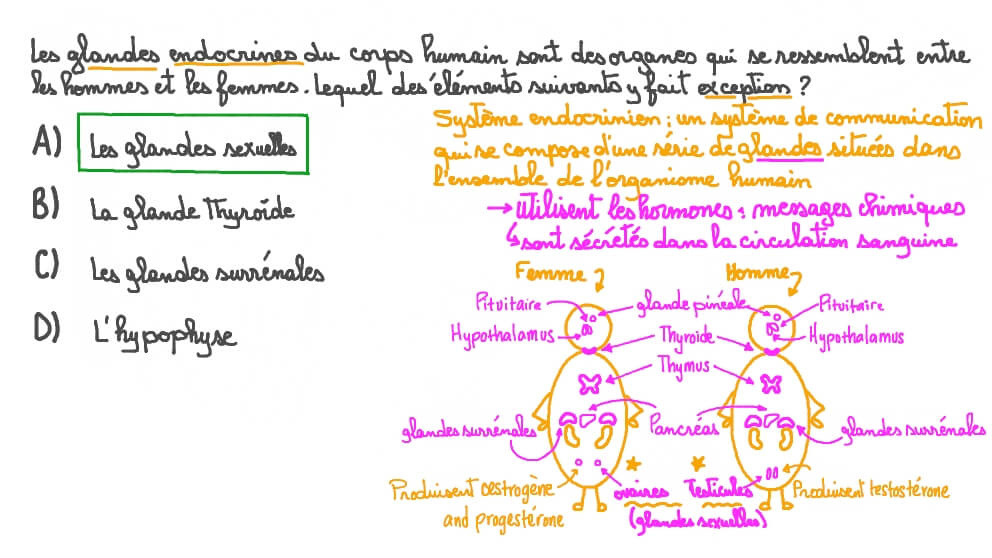 Les glandes endocrines du corps humain sont des organes qui se ressemblent entre
les hommes et les femmes. Lequel des éléments suivants y fait exception ?
A) Les glandes sexuelles
B) La glande Thyroïde
C) Les glandes surrénales
D) L'hypophyse
Système endocrinien : un système de communication
qui se compose d'une série de glandes situées dans
l'ensemble de l'organisme humain
→ Utilisent les hormones : messages chimiques
↳ sont sécrétés dans la circulation sanguine
Femme
Homme
Pituitaire
glande pinéale
Pituitaire
Hypothalamus
Thyroïde
Hypothalamus
Thymus
glandes surrénales
Pancréas
glandes surrénales
Produisent oestrogène
and progestérone
ovaires
Testicules
(glandes sexuelles)
Produisent testostérone